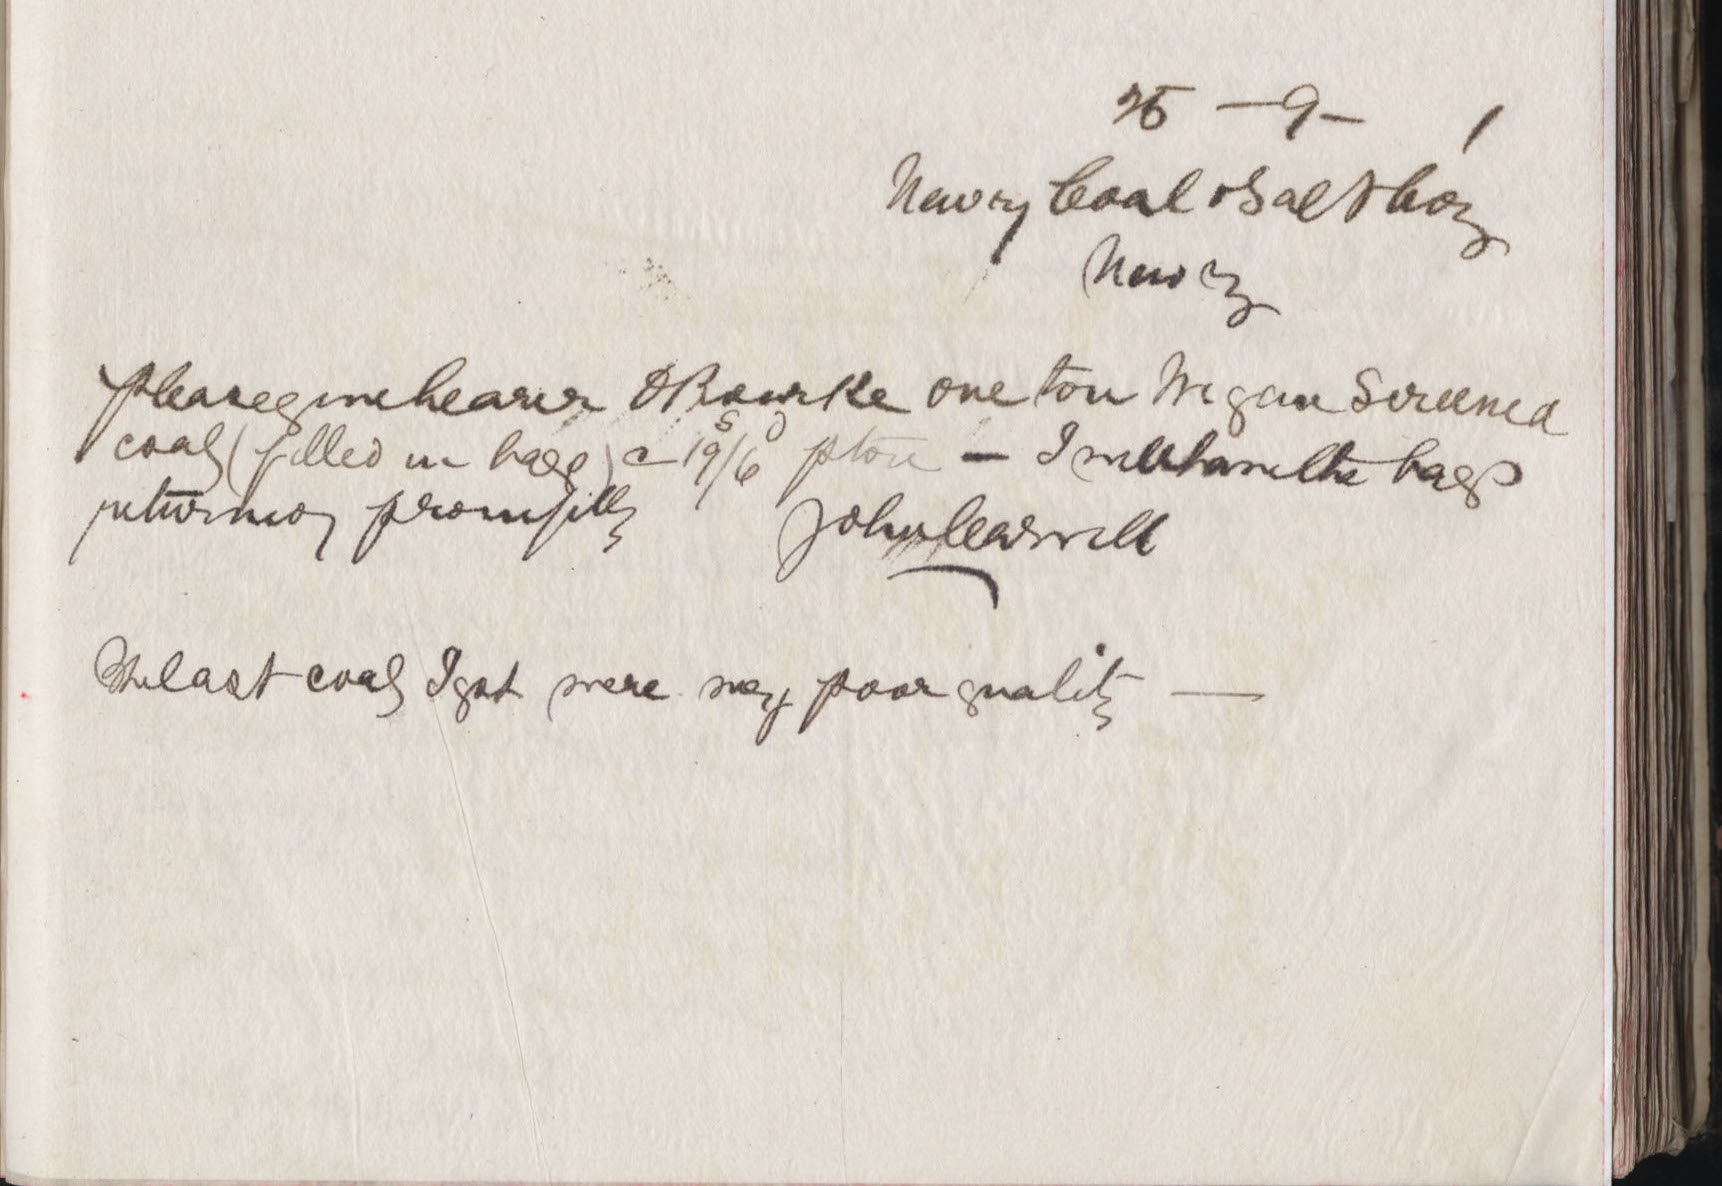 25 - 9 - 1
Newry Coal & Salt Coy
Newry
please give bearer O Rourke one ton Wigan Screened
coals (filled in bags) @ 19s/6d p ton - I will have the bags
returned promptly John
The last coals I got were very poor quality —